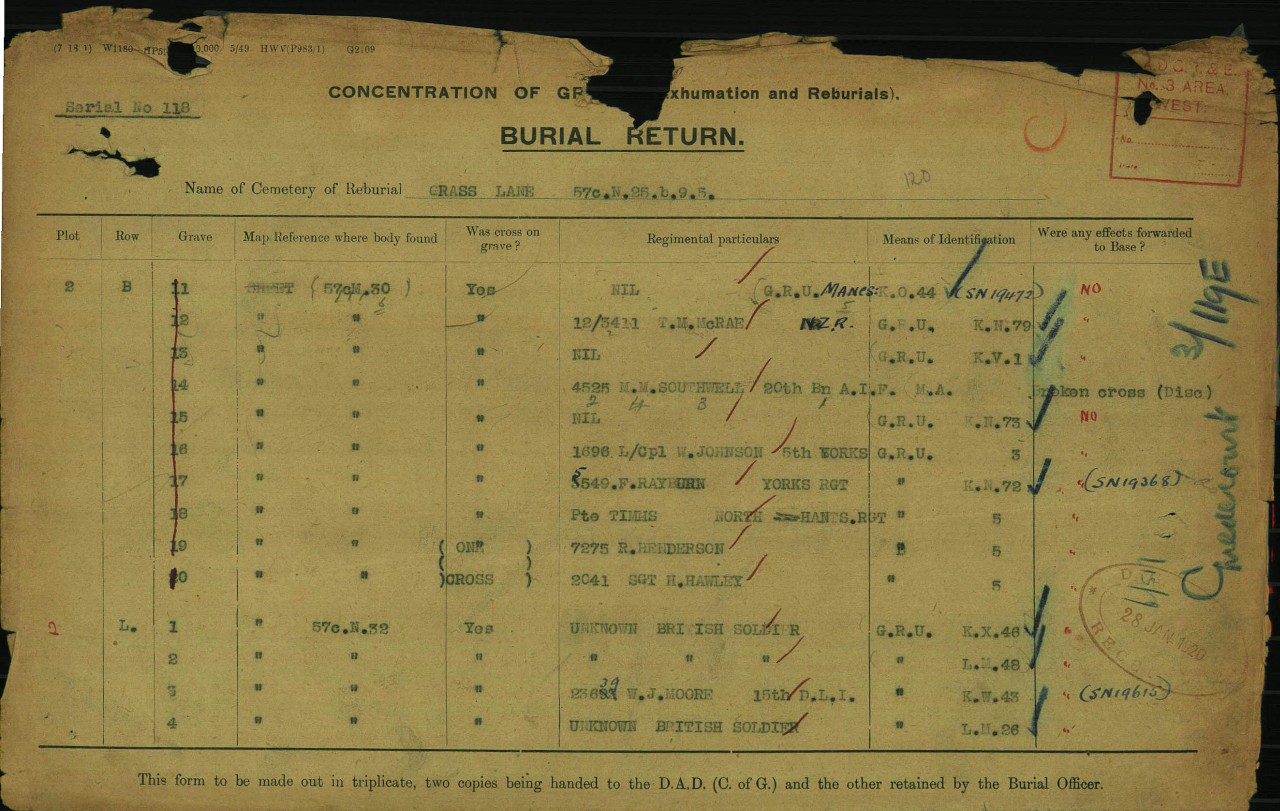 (7 18 1) W1180 0,000 5/49 HWV(P983/1) G2109
CONCENTRATION OF GR xhumation and Reburials).
Serial No 118
No. 3 AREA,
WEST.
No.
BURIAL RETURN.
Name of Cemetery of Reburial GRASS LANE 57c.N.25.b.9.3. 120
Plot Row Grave Map Reference where body found Was cross on grave? Regimental particulars Means of Identification Were any effects forwarded to Base?
2 B 11 SHEET (57cM.30) Yes NIL (G.R.U. MANCS: K.O.44 (SN19472) NO
12 " " " 12/3411 T.M.McRAE N.Z.R. G.R.U. K.N.79 "
13 " " " NIL G.R.U. K.V.1 "
14 " " " 4525 M.M.SOUTHWELL 20th Bn A.I.F. M.A. Broken cross (Disc)
2 4 3 1
15 " " " NIL G.R.U. K.N.73 NO
16 " " " 1696 L/Cpl W.JOHNSON 5th YORKS G.R.U. 3 "
17 " " " 5549.F.RAYBURN YORKS RGT " K.N.72 " (SN19368)
18 " " " Pte TIMMS NORTH HANTS.RGT " 5 "
19 " " ( ONE ) 7275 R.HENDERSON " 5 "
20 " " )CROSS ) 2041 SGT H.HAWLEY " 5 "
2 L. 1 " 57c.N.32 Yes UNKNOWN BRITISH SOLDIER G.R.U. K.X.46 "
2 " " " " " " " L.M.48 "
3 " " " 23639 W.J.MOORE 15th D.L.I. " K.W.43 " (SN19615)
4 " " " UNKNOWN BRITISH SOLDIER " L.M.26 "
3/119E
Gueudecourt
28 JAN 1920
This form to be made out in triplicate, two copies being handed to the D.A.D. (C. of G.) and the other retained by the Burial Officer.